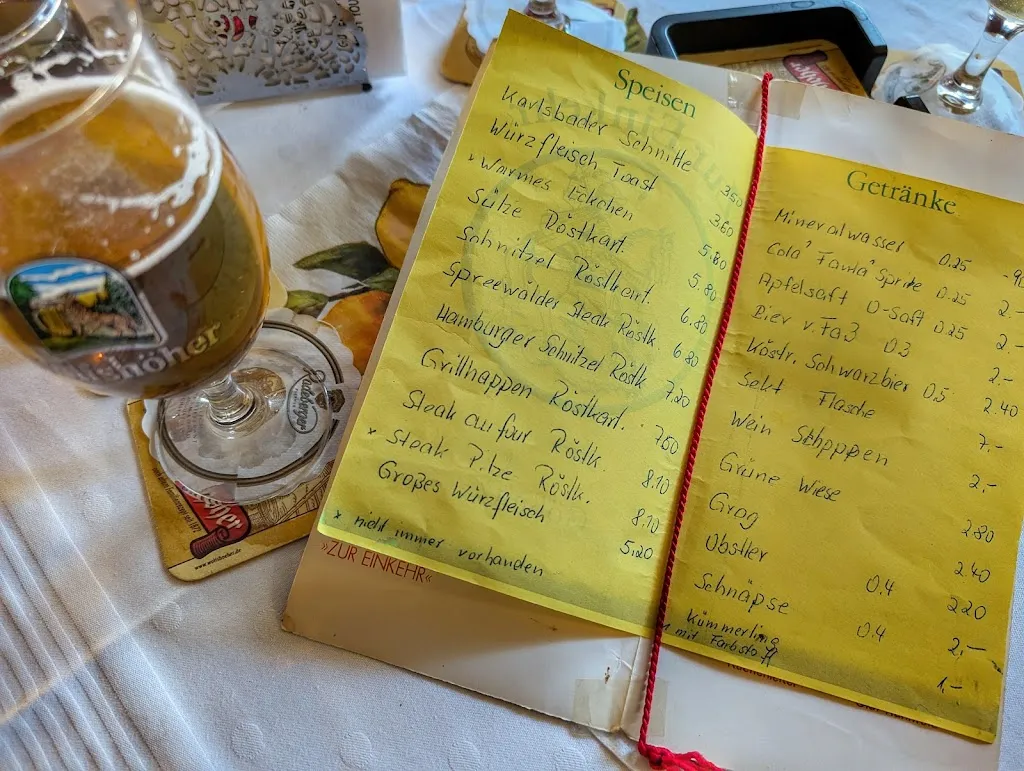 Speisen
Karlsbader Schnitte 3.50
Würzfleisch Toast 3.60
* Warmes Eckchen 5.80
Sülze Röstkart. 5.80
Schnitzel Röstkart. 6.80
Spreewälder Steak Röstk. 6.80
Hamburger Schnitzel Röstk 7.20
Grillhappen Röstkart. 7.60
Steak au four Röstk. 8.10
* Steak Pilze Röstk. 8.10
Großes Würzfleisch 5.20
* nicht immer vorhanden
»ZUR EINKEHR«
Getränke
Mineralwasser 0.25
Cola' Fanta' Sprite 0.25 2.-
Apfelsaft O-Saft 0.25 2.-
Bier v. Faß 0.3 2.-
Köstr. Schwarzbier 0.5 2.40
Sekt Flasche 7.-
Wein Schoppen 2.-
Grüne Wiese 2.80
Grog 2.40
Obstler 0.4 2.20
Schnäpse 0.4 2.-
Kümmerling 1.-
* mit Farbstoff
höher